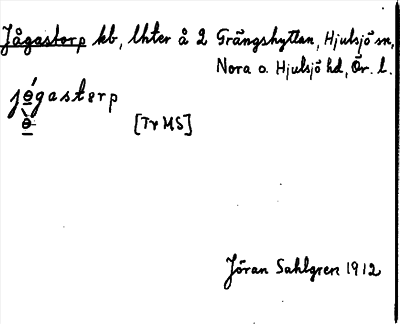 Jågastorp kb, lhter å 2 Grängshyttan, Hjulsjö sn,
Nora o. Hjulsjö hd, Ör. l.
jɵ́gastərp
ɵ
[Tr MS]
Jöran Sahlgren 1912